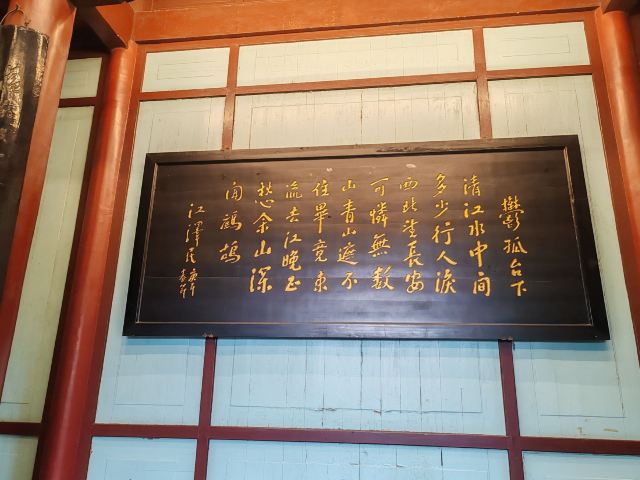 鬱孤台下
清江水中间
多少行人淚
西北望長安
可憐無數
山青山遮不
住畢竟東
流去江晚正
愁余山深
闻鷓鴣
江澤民
庚午